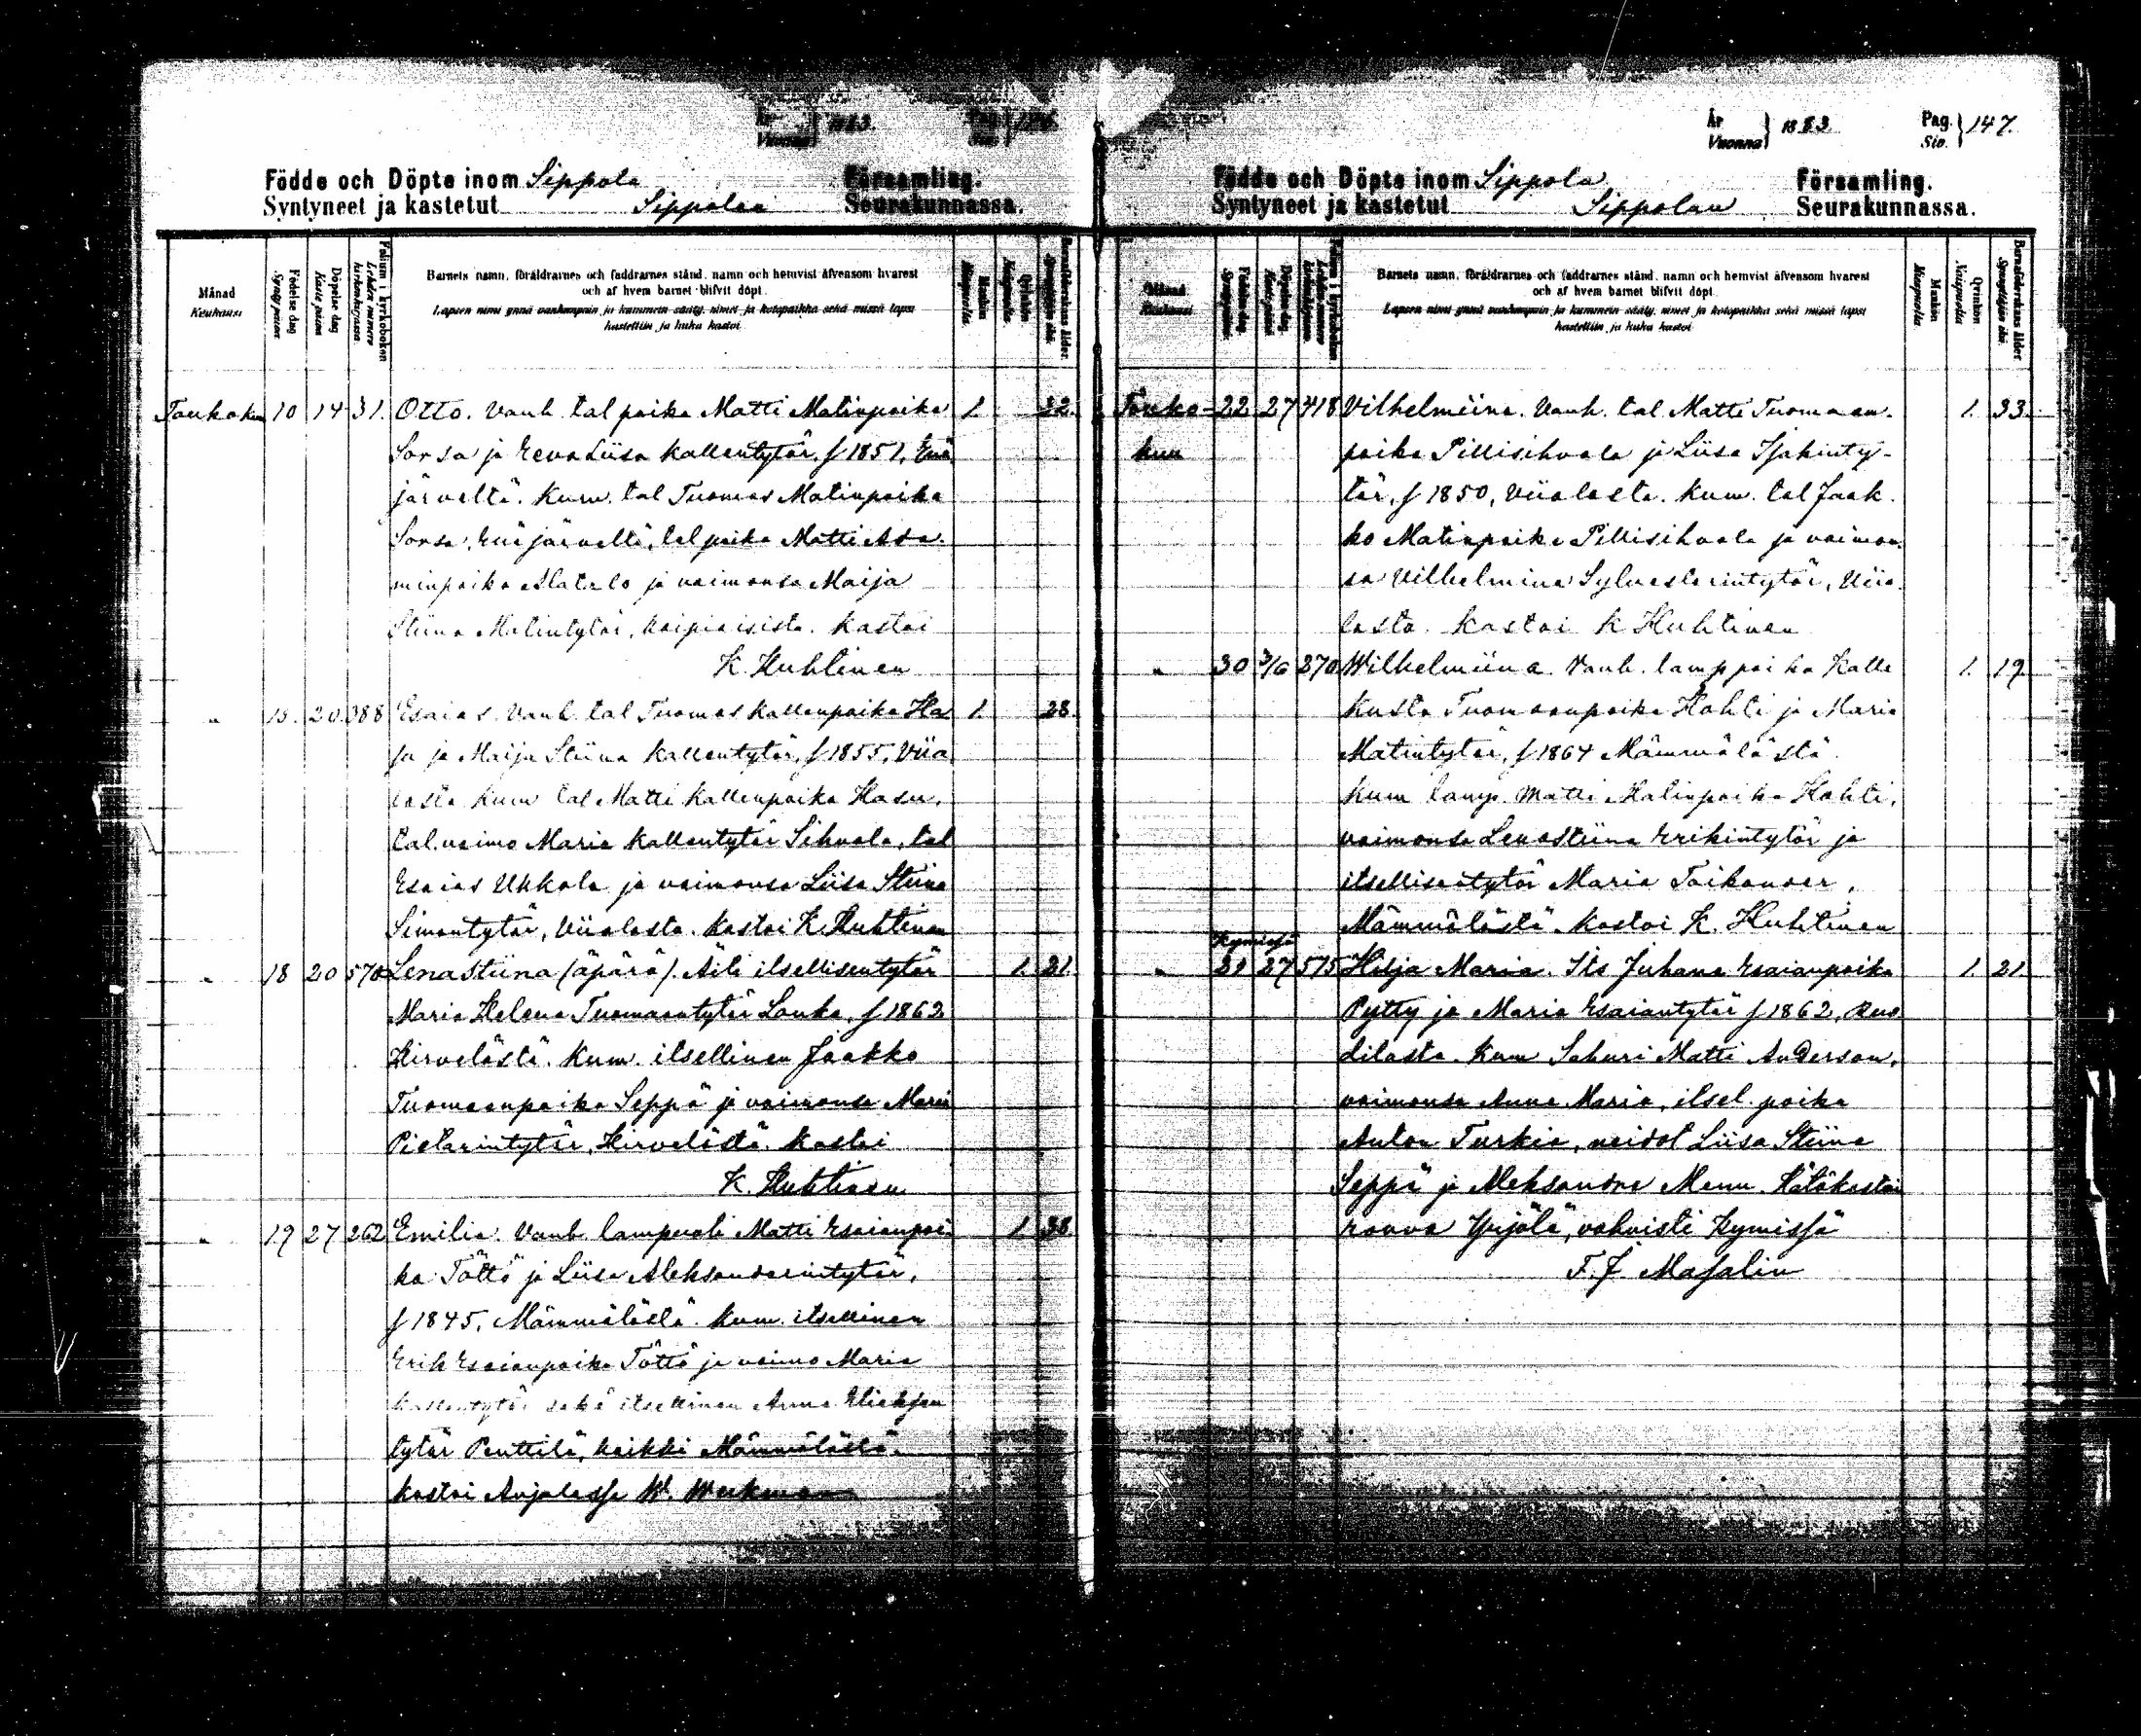 År Vuonna } 1883. Pag. Siv. } 146.
Födde och Döpte inom Sippola Församling.
Syntyneet ja kastetut Sippolan Seurakunnassa.
Månad Kuukausi
Födelse dag Syntypäivä
Döpelse dag Kaste päivä
Folium i kyrkoboken Lehden numero kirkonkirjassa
Barnets namn, föräldrarnes och faddrarnes stånd, namn och hemvist äfvensom hvarest
och af hvem barnet blifvit döpt.
Lapsen nimi ynnä vanhempain ja kummein sääty, nimet ja kotopaikka sekä missä lapsi
kastettiin ja kuka kastoi.
Mankön Miespuolia
Qvinkön Vaispuolia
Barnaföderskans ålder Synnyttäjän ikä
Toukokuu 10 14 31. Otto. Vanh. tal poika Matti Matinpoika 1. 32.
Sorsa ja Eeva Liisa Kallentytär, f 1851, Enä
järveltä. Kum. tal Tuomas Matinpoika
Sorsa, Enäjärveltä, tal poika Matti Ada-
minpoika Alatalo ja vaimonsa Maija
Stiina Matintytär, Kaipiaisista. Kastoi
K. Huhtinen
" 15. 20 388 Esaias. Vanh. tal Tuomas Kallenpoika Ha 1. 28.
su ja Maija Stiina Kallentytär, f 1855, Viia
lasta Kum tal Matti Kallenpoika Hasu,
tal. vaimo Maria Kallentytär Sihvola, tal
Esaias Ukkola ja vaimonsa Liisa Stiina
Simontytär, Viialasta. Kastoi K. Huhtinen
" 18 20 570 Lena Stiina (äpärä). Äiti itsellisentytär 1. 21.
Maria Helena Tuomaantytär Lanka, f 1862
Hirvelästä. Kum. itsellinen Jaakko
Tuomaanpoika Seppä ja vaimonsa Maria
Pietarintytär, Hirvelästä. Kastoi
K. Huhtinen
" 19 27 262 Emilia. Vanh. lampuoti Matti Esaianpoi- 1. 38.
ka Töttö ja Liisa Aleksanderintytär,
f 1845, Mämmälästä. Kum. itsellinen
Erik Esaianpoika Töttö ja vaimo Maria
Kallentytär sekä itsellinen Anna
tytär Penttilä, kaikki Mämmälästä.
Kastoi Anjalassa W. Werkman
År Vuonna } 1883 Pag. Siv. } 147.
Födde och Döpte inom Sippola Församling.
Syntyneet ja kastetut Sippolan Seurakunnassa.
Månad Kuukausi
Födelse dag Syntypäivä
Döpelse dag Kaste päivä
Folium i kyrkoboken Lehden numero kirkonkirjassa
Barnets namn, föräldrarnes och faddrarnes stånd, namn och hemvist äfvensom hvarest
och af hvem barnet blifvit döpt.
Lapsen nimi ynnä vanhempain ja kummein sääty, nimet ja kotopaikka sekä missä lapsi
kastettiin ja kuka kastoi
Mankön Miespuolia
Qvinkön Vaispuolia
Barnaföderskans ålder Synnyttäjän ikä
Touko- 22 27 418 Vilhelmiina. Vanh. tal. Matti Tuomaan- 1. 33.
kuu poika Pillisihvola ja Liisa Isakinty-
tär, f 1850, Viialasta. Kum. tal Jaak-
ko Matinpoika Pillisihvola ja vaimon-
sa Vilhelmina Sylvesterintytär, Viia-
lasta. Kastoi K Huhtinen
" 30 3/6 270 Wilhelmiina. Vanh. lamp poika Kalle 1. 19.
Kusta Tuomaanpoika Hohti ja Maria
Matintytär, f 1864 Mämmälästä
Kum lamp. Matti Matinpoika Hohti,
vaimonsa Lenastiina Erikintytär ja
itsellisentytär Maria Toikander,
Mämmälästä. Kastoi K. Huhtinen
Kymissä
" 21 27 575 Hilja Maria. Its Juhana Esaianpoika 1. 21.
Pytty ja Maria Esaiantytär f 1862, Ruo
tilasta. Kum Sahuri Matti Anderson,
vaimonsa Anna Maria, itsel. poika
Anton Turkia, neidot Liisa Stiina
Seppä ja Aleksandra Menu. Hätäkastoi
rouva Yrjölä, vahvisti Kymissä
F. J. Masalin